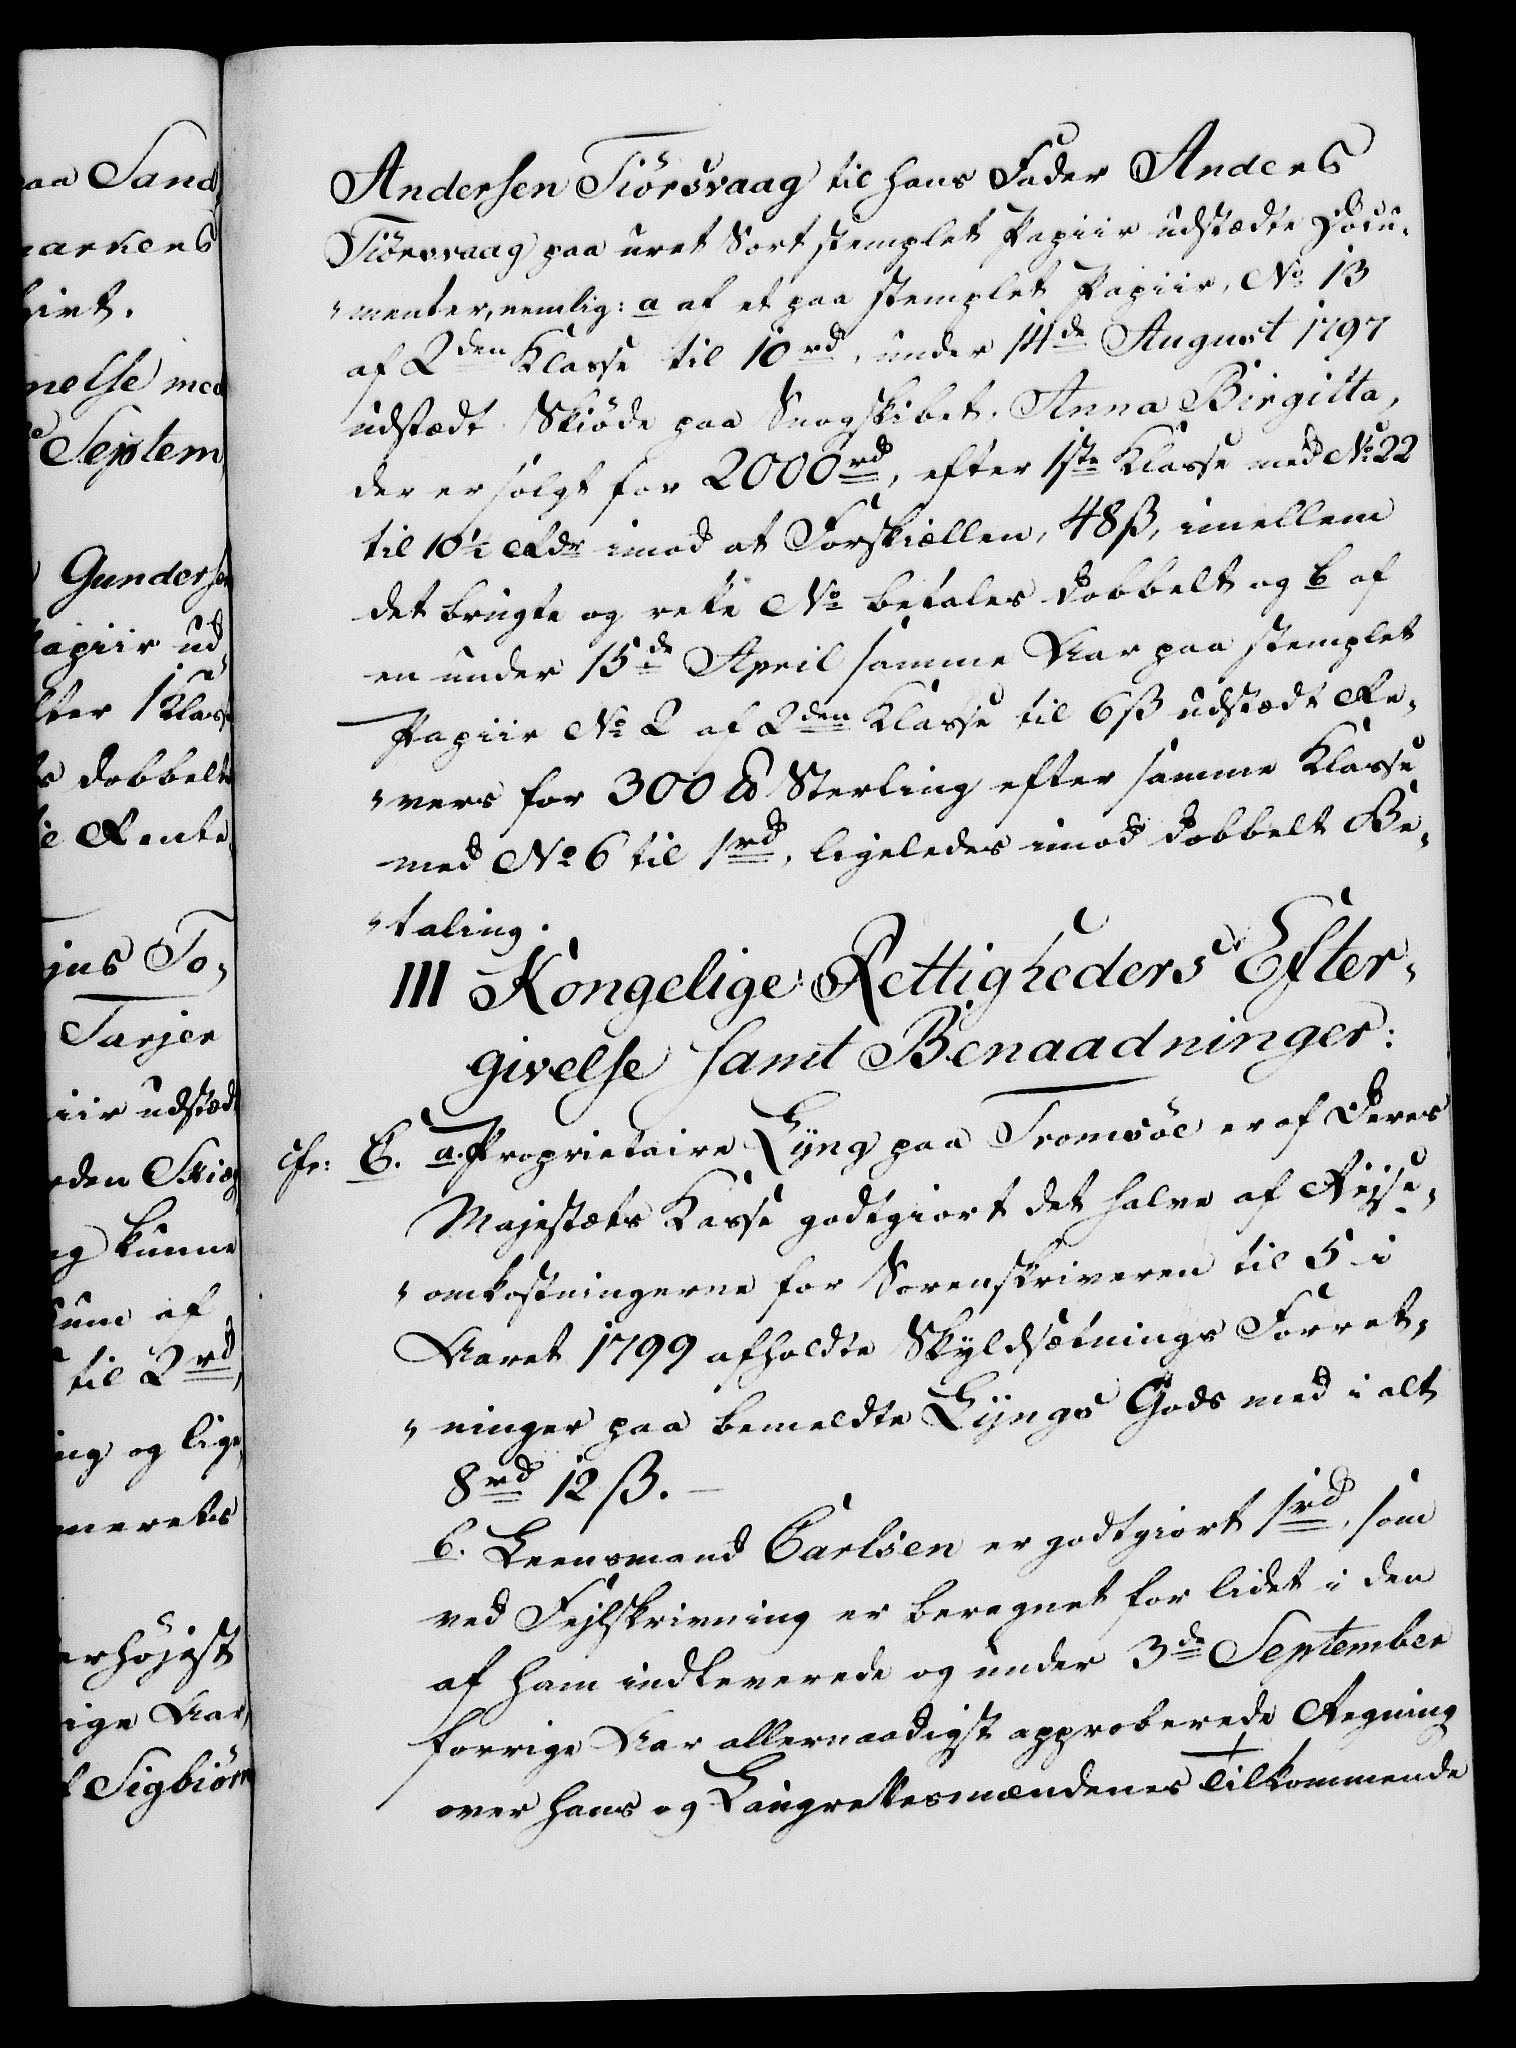 aa Sand,
arkens
hirt.
melse med
Septem,
Gundersen
apiir ud,
fter 1 Klasse
s dobbelt
Rente
jns To,
Tarjer
iir udstædt
eden Skiøg
kunne
Sum af
til 2rd,
ing og lige
merets
erhøjest
ige Aar,
Sigbiørn
Andersen Fiörsvaag til hans Fader Anders
Fiörsvaag paa uret Sort stemplet Papiir udstædte Docu,
"menter, nemlig: a af et paa stemplet Papiir, No 13
af 2den Klasse til 10rd, under 14de August 1797
udstædt Skiöde paa Snogskibet, Anna Birgitta,
der er solgt for 2000rd, efter 1ste Klasse med No 22
til 10½ Rdr imod at Forskiællen, 48ß, imellem
det brugte og rette No betales dobbelt og b af
en under 15de April samme Aar paa stemplet
Papiir No 2 af 2den Klasse til 6ß udstædt Re,
"vers for 300 ℔ Sterling efter samme Klasse
med No 6 til 1rd, ligeledes imod dobbelt Be,
"taling.
III Kongelige Rettigheders Efter,
givelse samt Benaadninger:
cfr: C. a. Proprietaire Lyng paa Tromsöe er af Deres
Majestæts Kasse godtgiort det halve af Rejse,
"omkostningerne for Sorenskriveren til 5 i
Aaret 1799 afholdte Skyldsætnings Forret,
"ninger paa bemeldte Lyngs Gods med i alt
8rd 12ß. —
b. Leensmand Carlsen er godtgiort 1rd, som
ved Fejlskrivning er beregnet for lidet i den
af ham indleverede og under 3de September
forrige Aar allernaadigst approberede Regning
over hans og Laugrettesmændenes Tilkommende